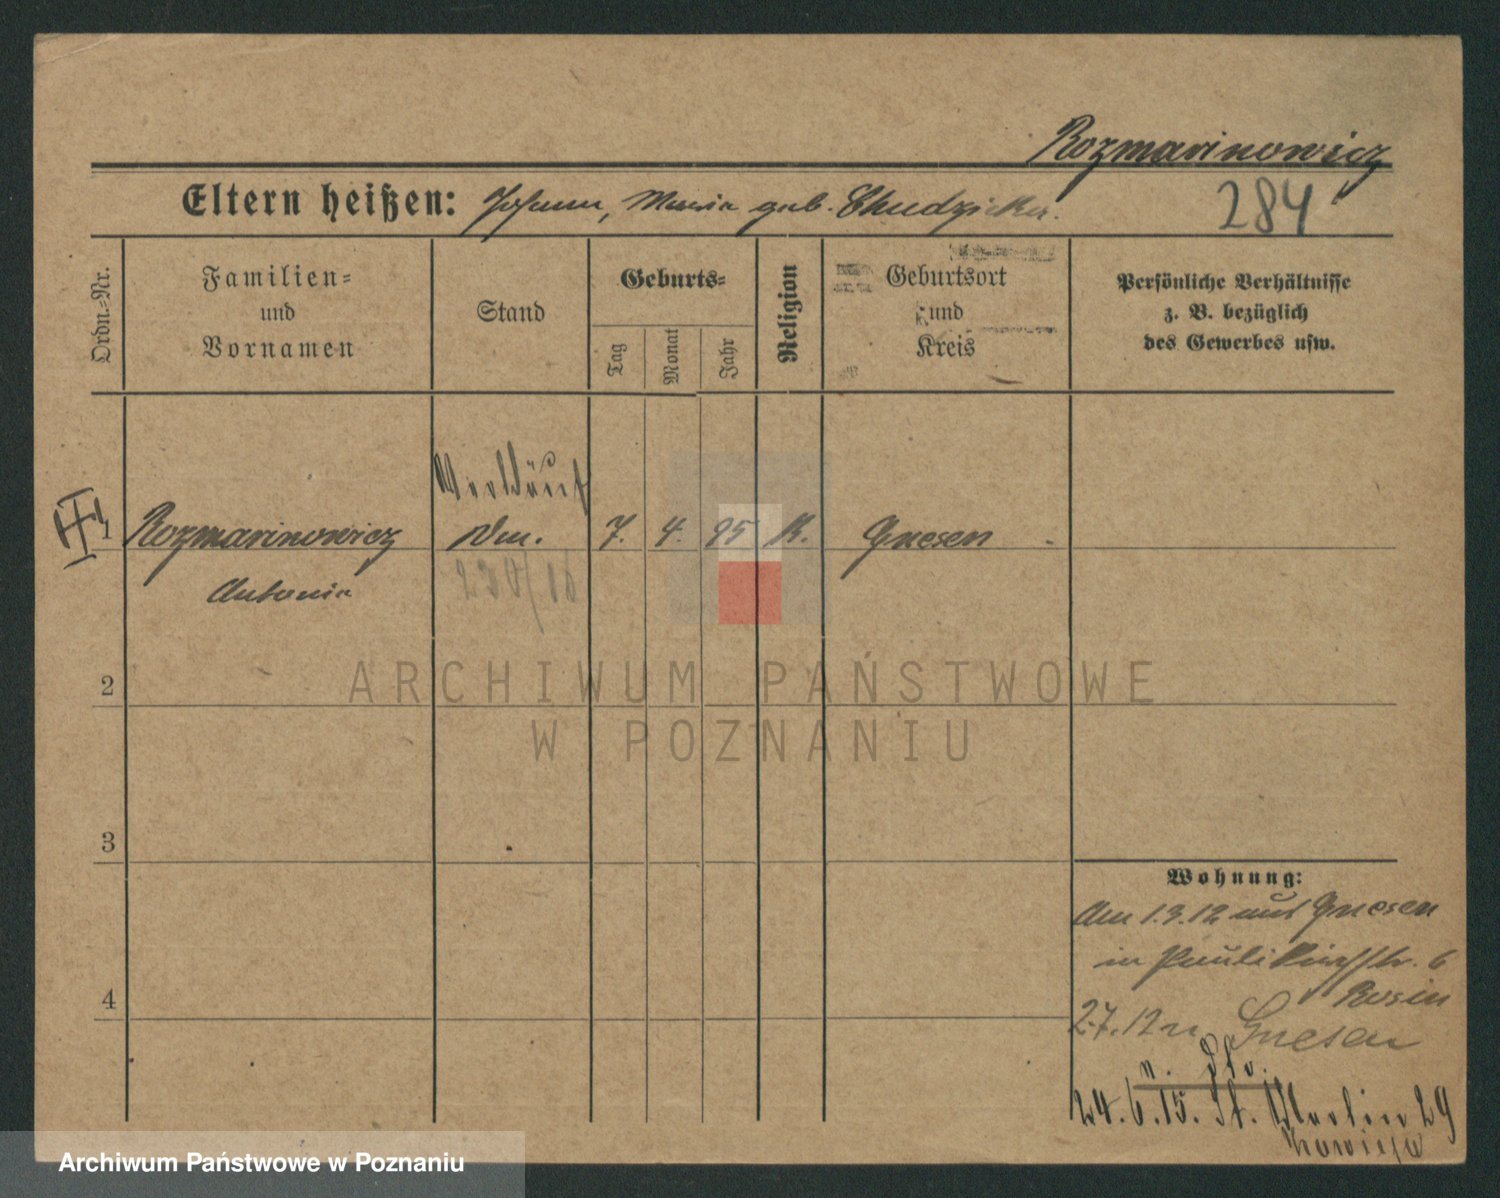 Rozmarinowicz
Eltern heißen: Johann, Maria geb. Chudzicka.
284
Ordn.-Nr.
Familien-
und
Vornamen
Stand
Geburts-
Tag
Monat
Jahr
Religion
Geburtsort
und
Kreis
Persönliche Verhältnisse
z. B. bezüglich
des Gewerbes usw.
1 Rozmarinowicz 7. 4. 95 K. Gnesen
Antonie
2
3
4
Wohnung:
Am 1.3.12 aus Gnesen
in Paulikirchstr. 6
27.12 n Gnesen
24.6.15. St. Martin 29
ARCHIWUM PAŃSTWOWE
W POZNANIU
Archiwum Państwowe w Poznaniu